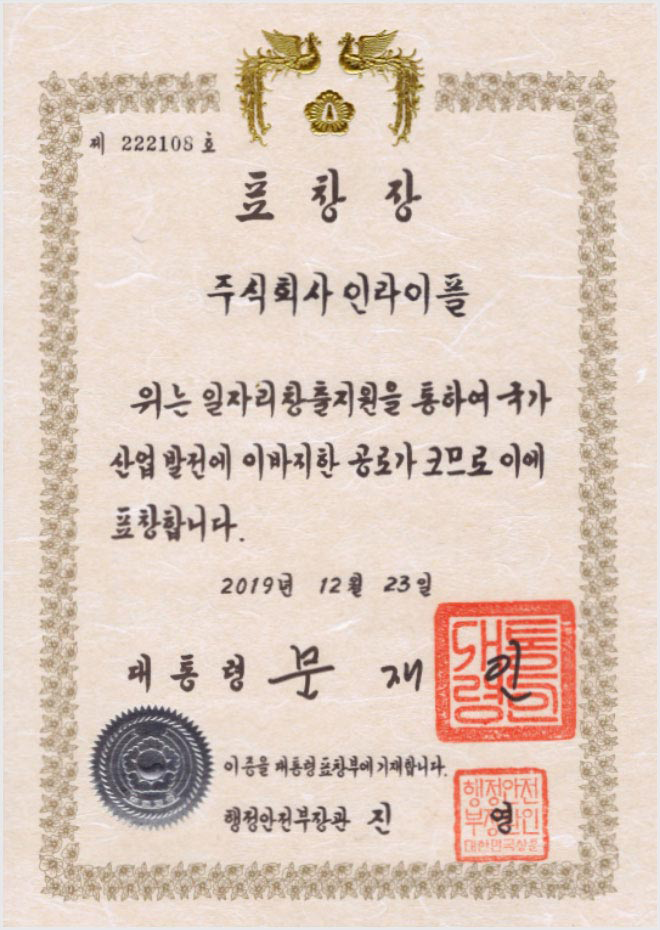 제 222108 호
표 창 장
주식회사 인라이플
위는 일자리창출지원을 통하여 국가
산업 발전에 이바지한 공로가 크므로 이에
표창합니다.
2019년 12월 23일
대통령 문 재 인
대통령의인
이 증을 대통령표창부에 기재합니다.
행정안전부장관 진 영
행정안전
부장관인